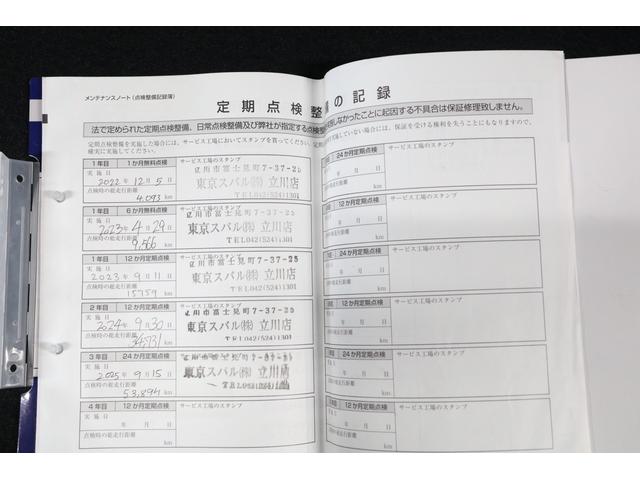 メンテナンスノート(点検整備記録簿)
定期点検整
備の記録
法で定められた定期点検整備、日常点検整備及び弊社が指定する点検
しなかったことに起因する不具合は保証修理致しません。
定期点検整備を実施した場合には、サービス工場においてスタンプを貰ってください。定
実施していない場合には、保証を受ける権利を失うことにもなりますので、
確実に実施してください。
1年目 1か月無料点検 サービス工場のスタンプ
実施日
2022年12月5日
点検時の総走行距離
4,093 km
立川市富士見町7-37-25
東京スバル㈱ 立川店
TEL042(524)1301
1年目 6か月無料点検 サービス工場のスタンプ
実施日
2023年4月29日
点検時の総走行距離
9,566 km
立川市富士見町7-37-25
東京スバル㈱ 立川店
TEL042(524)1301
1年目 12か月定期点検 サービス工場のスタンプ
実施日
2023年9月11日
点検時の総走行距離
15759 km
立川市富士見町7-37-25
東京スバル㈱ 立川店
TEL042(524)1301
2年目 12か月定期点検 サービス工場のスタンプ
実施日
2024年9月30日
点検時の総走行距離
km
立川市富士見町7-37-25
東京スバル㈱ 立川店
TEL042(524)1301
3年目 24か月定期点検 サービス工場のスタンプ
実施日
2025年9月15日
点検時の総走行距離
53,894 km
東京スバル㈱ 立川店
TEL042(524)1301
4年目 12か月定期点検 サービス工場のスタンプ
実施日
年 月 日
点検時の総走行距離
km
24か月定期点検 サービス工場のスタンプ
年 月 日
km
12か月定期点検 サービス工場のスタンプ
年 月 日
km
24か月定期点検 サービス工場のスタンプ
年 月 日
km
12か月定期点検 サービス工場のスタンプ
年 月 日
km
24か月定期点検 サービス工場のスタンプ
年 月 日
km
12か月定期点検 サービス工場のスタンプ
年 月 日
km